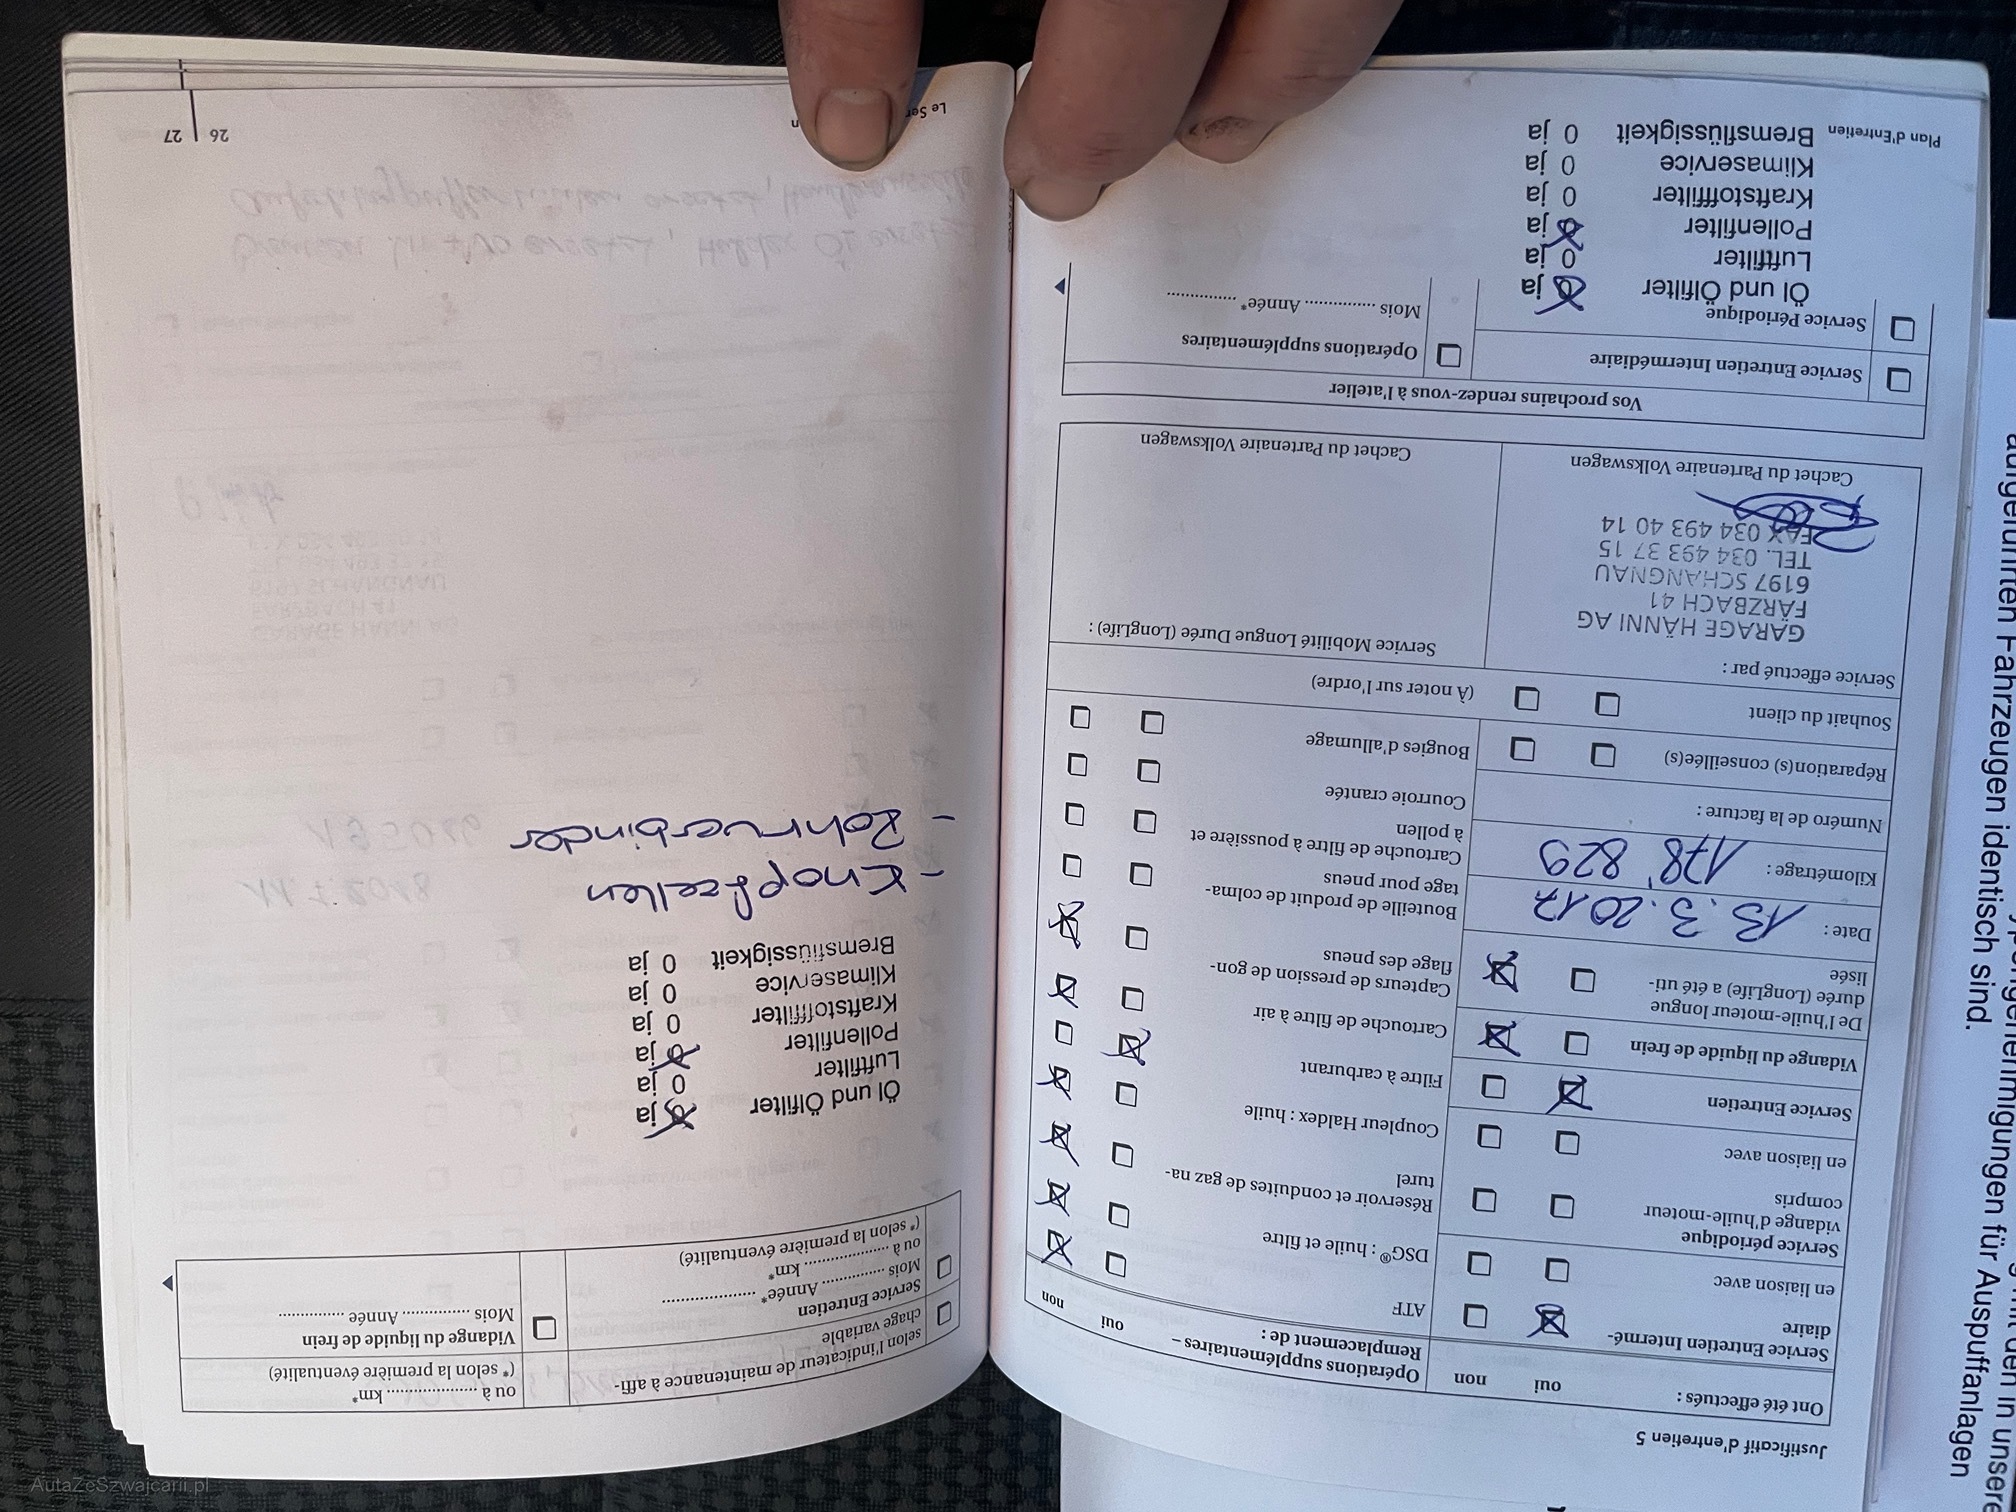 Justificatif d'entretien 5
Ont été effectués :
oui
non
Service Entretien Intermé-
diaire
en liaison avec
Service périodique
vidange d'huile-moteur
compris
en liaison avec
Service Entretien
Vidange du liquide de frein
De l'huile-moteur longue
durée (LongLife) a été uti-
lisée
Date : 13.3.2017
Kilométrage : 178'829
Numéro de la facture :
Réparation(s) conseillée(s)
Souhait du client
Service effectué par :
GARAGE HÄNNI AG
FÄRZBACH 41
6197 SCHANGNAU
TEL. 034 493 37 15
FAX 034 493 40 14
Cachet du Partenaire Volkswagen
Opérations supplémentaires –
Remplacement de :
oui
non
ATF
DSG® : huile et filtre
Réservoir et conduites de gaz na-
turel
Coupleur Haldex : huile
Filtre à carburant
Cartouche de filtre à air
Capteurs de pression de gon-
flage des pneus
Bouteille de produit de colma-
tage pour pneus
Cartouche de filtre à poussière et
à pollen
Courroie crantée
Bougies d'allumage
(À noter sur l'ordre)
Service Mobilité Longue Durée (LongLife) :
Cachet du Partenaire Volkswagen
Vos prochains rendez-vous à l'atelier
Service Entretien Intermédiaire
Opérations supplémentaires
Service Périodique
Mois ................ Année* ................
Öl und Ölfilter 0 ja
Luftfilter 0 ja
Pollenfilter 0 ja
Kraftstofffilter 0 ja
Klimaservice 0 ja
Bremsflüssigkeit 0 ja
Plan d'Entretien
selon l'indicateur de maintenance à affi-
chage variable
ou à ..................... km*
(* selon la première éventualité)
Service Entretien
Mois ............... Année* .....................
ou à ................... km*
(* selon la première éventualité)
Vidange du liquide de frein
Mois ................ Année ................
Öl und Ölfilter 0 ja
Luftfilter 0 ja
Pollenfilter 0 ja
Kraftstofffilter 0 ja
Klimaservice 0 ja
Bremsflüssigkeit 0 ja
- Knopfzellen
- Rohrverbinder
Le
26
27
aufgeführten Fahrzeugen identisch sind.
für Auspuffanlagen
AutaZeSzwajcarii.pl